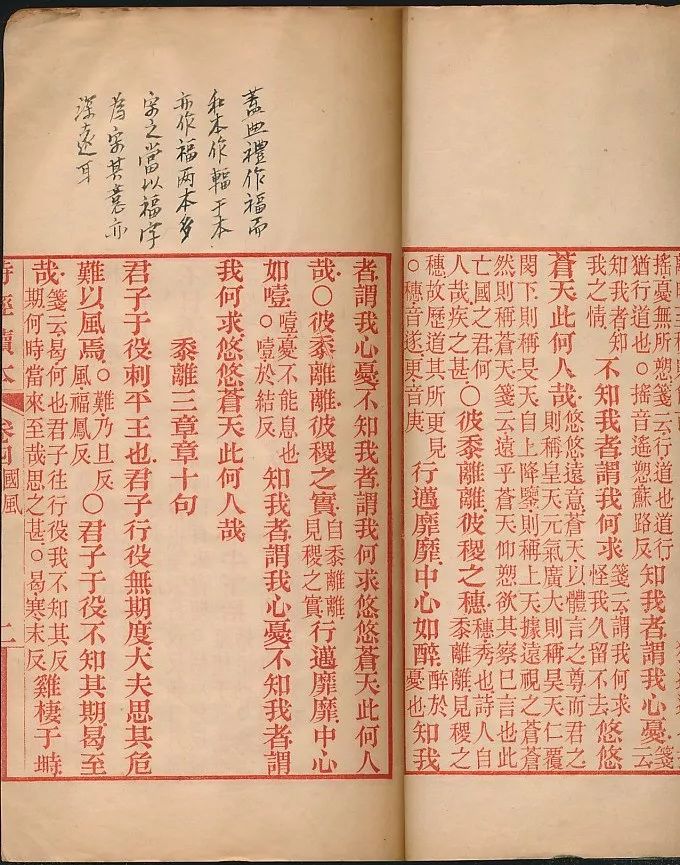 搖憂無所愬箋云行道也道行
猶行道也○搖音遙愬蘇路反
知我者謂我心憂
箋云
知我者知
我之情
不知我者謂我何求
箋云謂我何求
怪我久留不去
悠悠
蒼天此何人哉
悠悠遠意蒼天以體言之尊而君之
則稱皇天元氣廣大則稱昊天仁覆
閔下則稱旻天自上降鑒則稱上天據遠視之蒼蒼
然則稱蒼天箋云遠乎蒼天仰愬欲其察巳言也此
亡國之君何
人哉疾之甚
○彼黍離離彼稷之穗
穗秀也詩人自
黍離離見稷之
穗故歷道其所更見
○穗音遂更音庚
行邁靡靡中心如醉
醉於
憂也
知我
蓋典禮作福而
和本作輻于本
亦作福两本多
字之當以福字
為宗其意亦
深遠耳
者謂我心憂不知我者謂我何求悠悠蒼天此何人
哉○彼黍離離彼稷之實
自黍離離
見稷之實
行邁靡靡中心
如噎
噎憂不能息也
○噎於結反
知我者謂我心憂不知我者謂
我何求悠悠蒼天此何人哉
黍離三章章十句
君子于役刺平王也君子行役無期度大夫思其危
難以風焉
○難乃旦反
風福鳳反
○君子于役不知其期曷至
哉
箋云曷何也君子往行役我不知其反
期何時當來至哉思之甚○曷寒末反
雞棲于塒
詩經讀本
卷四
國風
二